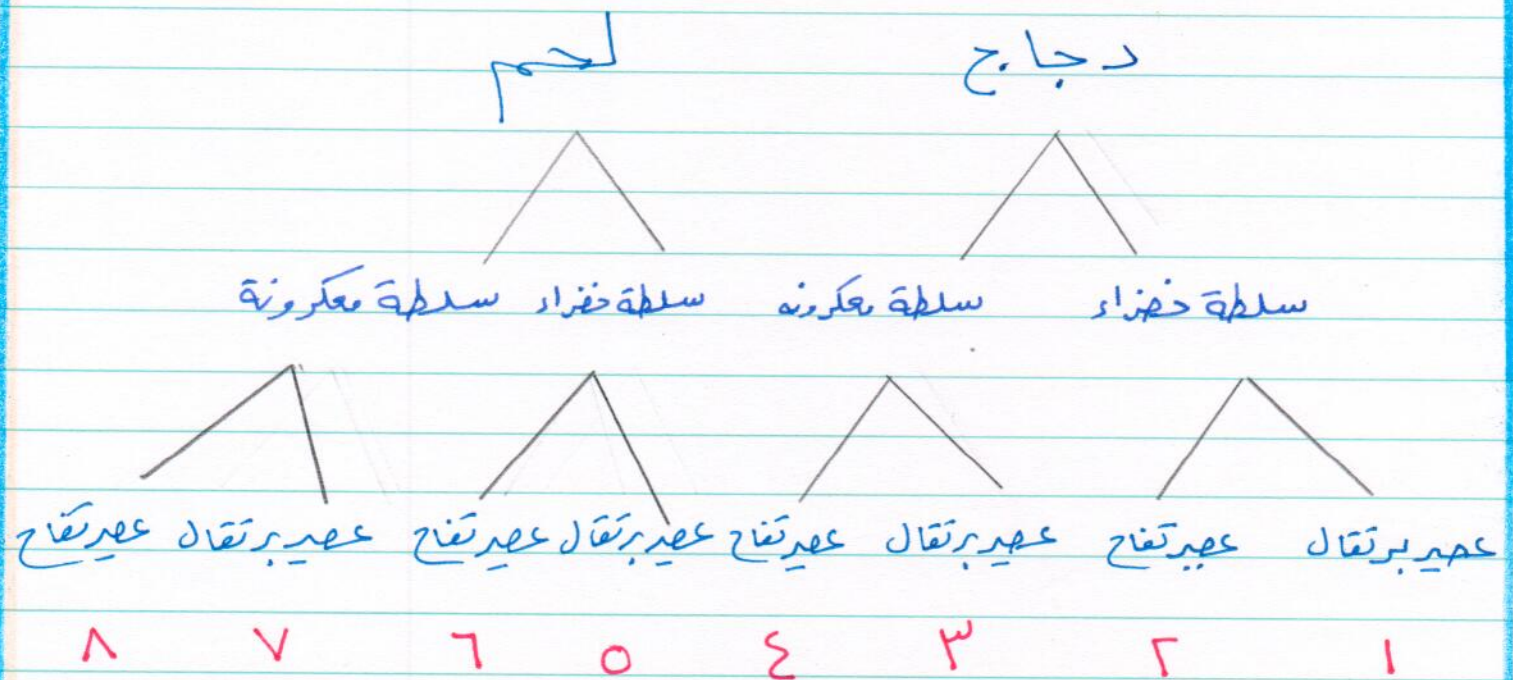 دجاج لحم
سلطة خضراء سلطة معكرونه سلطة خضراء سلطة معكرونة
عصير برتقال عصير تفاح عصير برتقال عصير تفاح عصير برتقال عصير تفاح عصير برتقال عصير تفاح
١ ٢ ٣ ٤ ٥ ٦ ٧ ٨